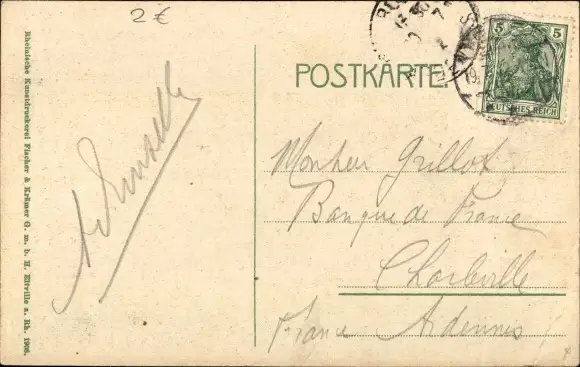 2 €
POSTKARTE.
5
DEUTSCHES REICH
Rheinische Kunstdruckerei Fischer & Krämer G. m. b. H. Eltville a. Rh. 1906.
Monsieur Grillot
Banque de France
Charleville
France Ardennes